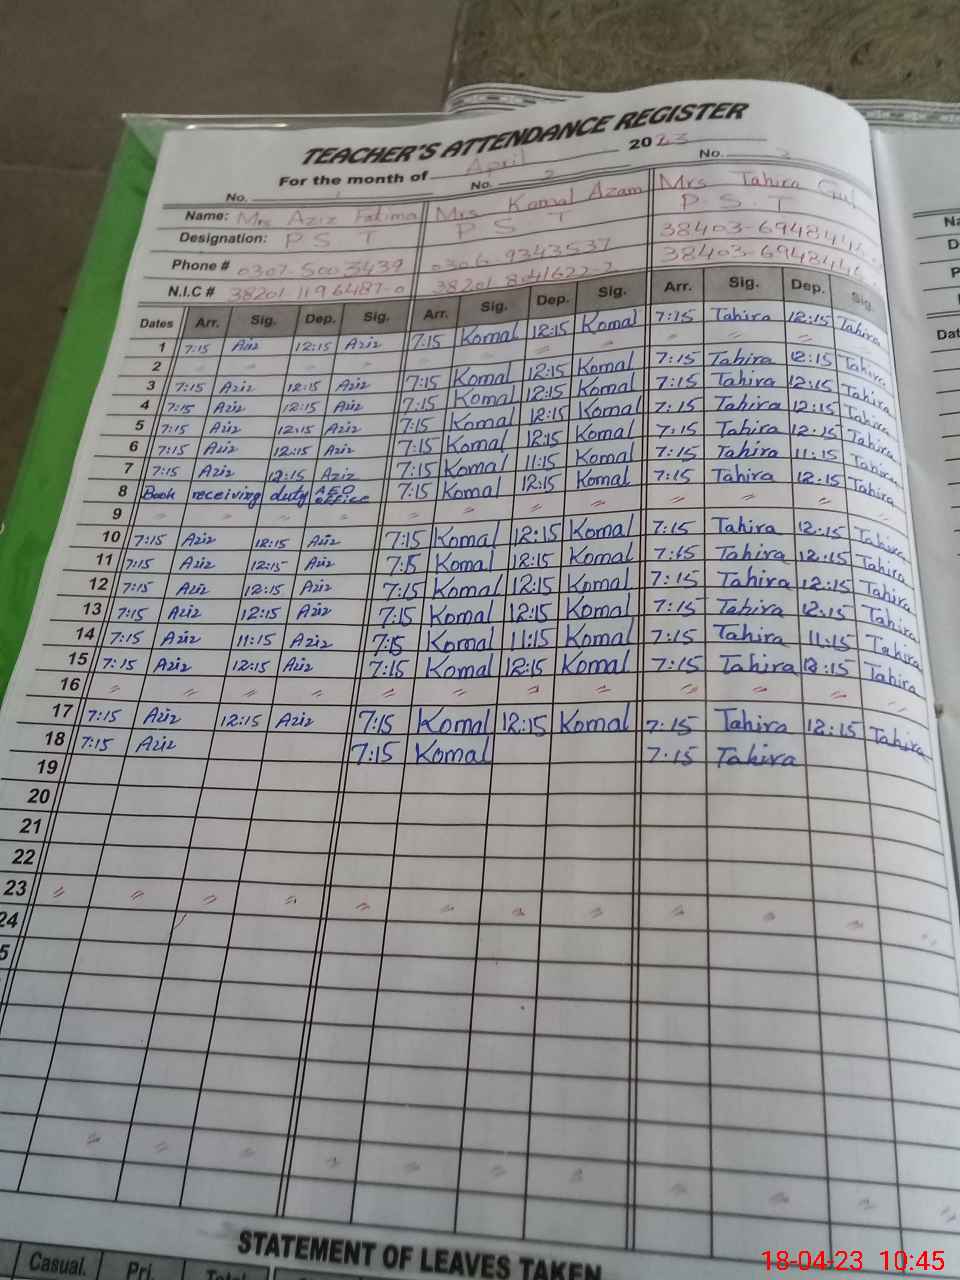 TEACHER'S ATTENDANCE REGISTER
For the month of April 2023
No. 1 No. 2 No. 3
Name: Mrs Aziz Fatima Mrs Komal Azam Mrs Tahira Gul
Designation: P S T P S T P.S.T
Phone # 0307-5003439 0306-9343537 38403-6948444
N.I.C # 38201 1196487-0 38201-8041622-2 38403-694844
Dates Arr. Sig. Dep. Sig. Arr. Sig. Dep. Sig. Arr. Sig. Dep. Sig.
1 7:15 Aziz 12:15 Aziz 7:15 Komal 12:15 Komal 7:15 Tahira 12:15 Tahira
2 〃 〃 〃 〃 〃 〃 〃 〃 〃 〃 〃 〃
3 7:15 Aziz 12:15 Aziz 7:15 Komal 12:15 Komal 7:15 Tahira 12:15 Tahira
4 7:15 Aziz 12:15 Aziz 7:15 Komal 12:15 Komal 7:15 Tahira 12:15 Tahira
5 7:15 Aziz 12:15 Aziz 7:15 Komal 12:15 Komal 7:15 Tahira 12:15 Tahira
6 7:15 Aziz 12:15 Aziz 7:15 Komal 12:15 Komal 7:15 Tahira 12:15 Tahira
7 7:15 Aziz 12:15 Aziz 7:15 Komal 11:15 Komal 7:15 Tahira 11:15 Tahira
8 Book receiving duty AEO office 7:15 Komal 12:15 Komal 7:15 Tahira 12:15 Tahira
9 〃 〃 〃 〃 〃 〃 〃 〃 〃 〃 〃 〃
10 7:15 Aziz 12:15 Aziz 7:15 Komal 12:15 Komal 7:15 Tahira 12:15 Tahira
11 7:15 Aziz 12:15 Aziz 7:15 Komal 12:15 Komal 7:15 Tahira 12:15 Tahira
12 7:15 Aziz 12:15 Aziz 7:15 Komal 12:15 Komal 7:15 Tahira 12:15 Tahira
13 7:15 Aziz 12:15 Aziz 7:15 Komal 12:15 Komal 7:15 Tahira 12:15 Tahira
14 7:15 Aziz 11:15 Aziz 7:15 Komal 11:15 Komal 7:15 Tahira 11:15 Tahira
15 7:15 Aziz 12:15 Aziz 7:15 Komal 12:15 Komal 7:15 Tahira 12:15 Tahira
16 〃 〃 〃 〃 〃 〃 〃 〃 〃 〃 〃 〃
17 7:15 Aziz 12:15 Aziz 7:15 Komal 12:15 Komal 7:15 Tahira 12:15 Tahira
18 7:15 Aziz 7:15 Komal 7:15 Tahira
19
20
21
22
23 〃 〃 〃 〃 〃 〃 〃 〃 〃 〃 〃 〃
24
5
〃 〃 〃 〃 〃 〃 〃 〃 〃 〃 〃 〃
STATEMENT OF LEAVES TAKEN
Casual. Pri. Total
18-04-23 10:45